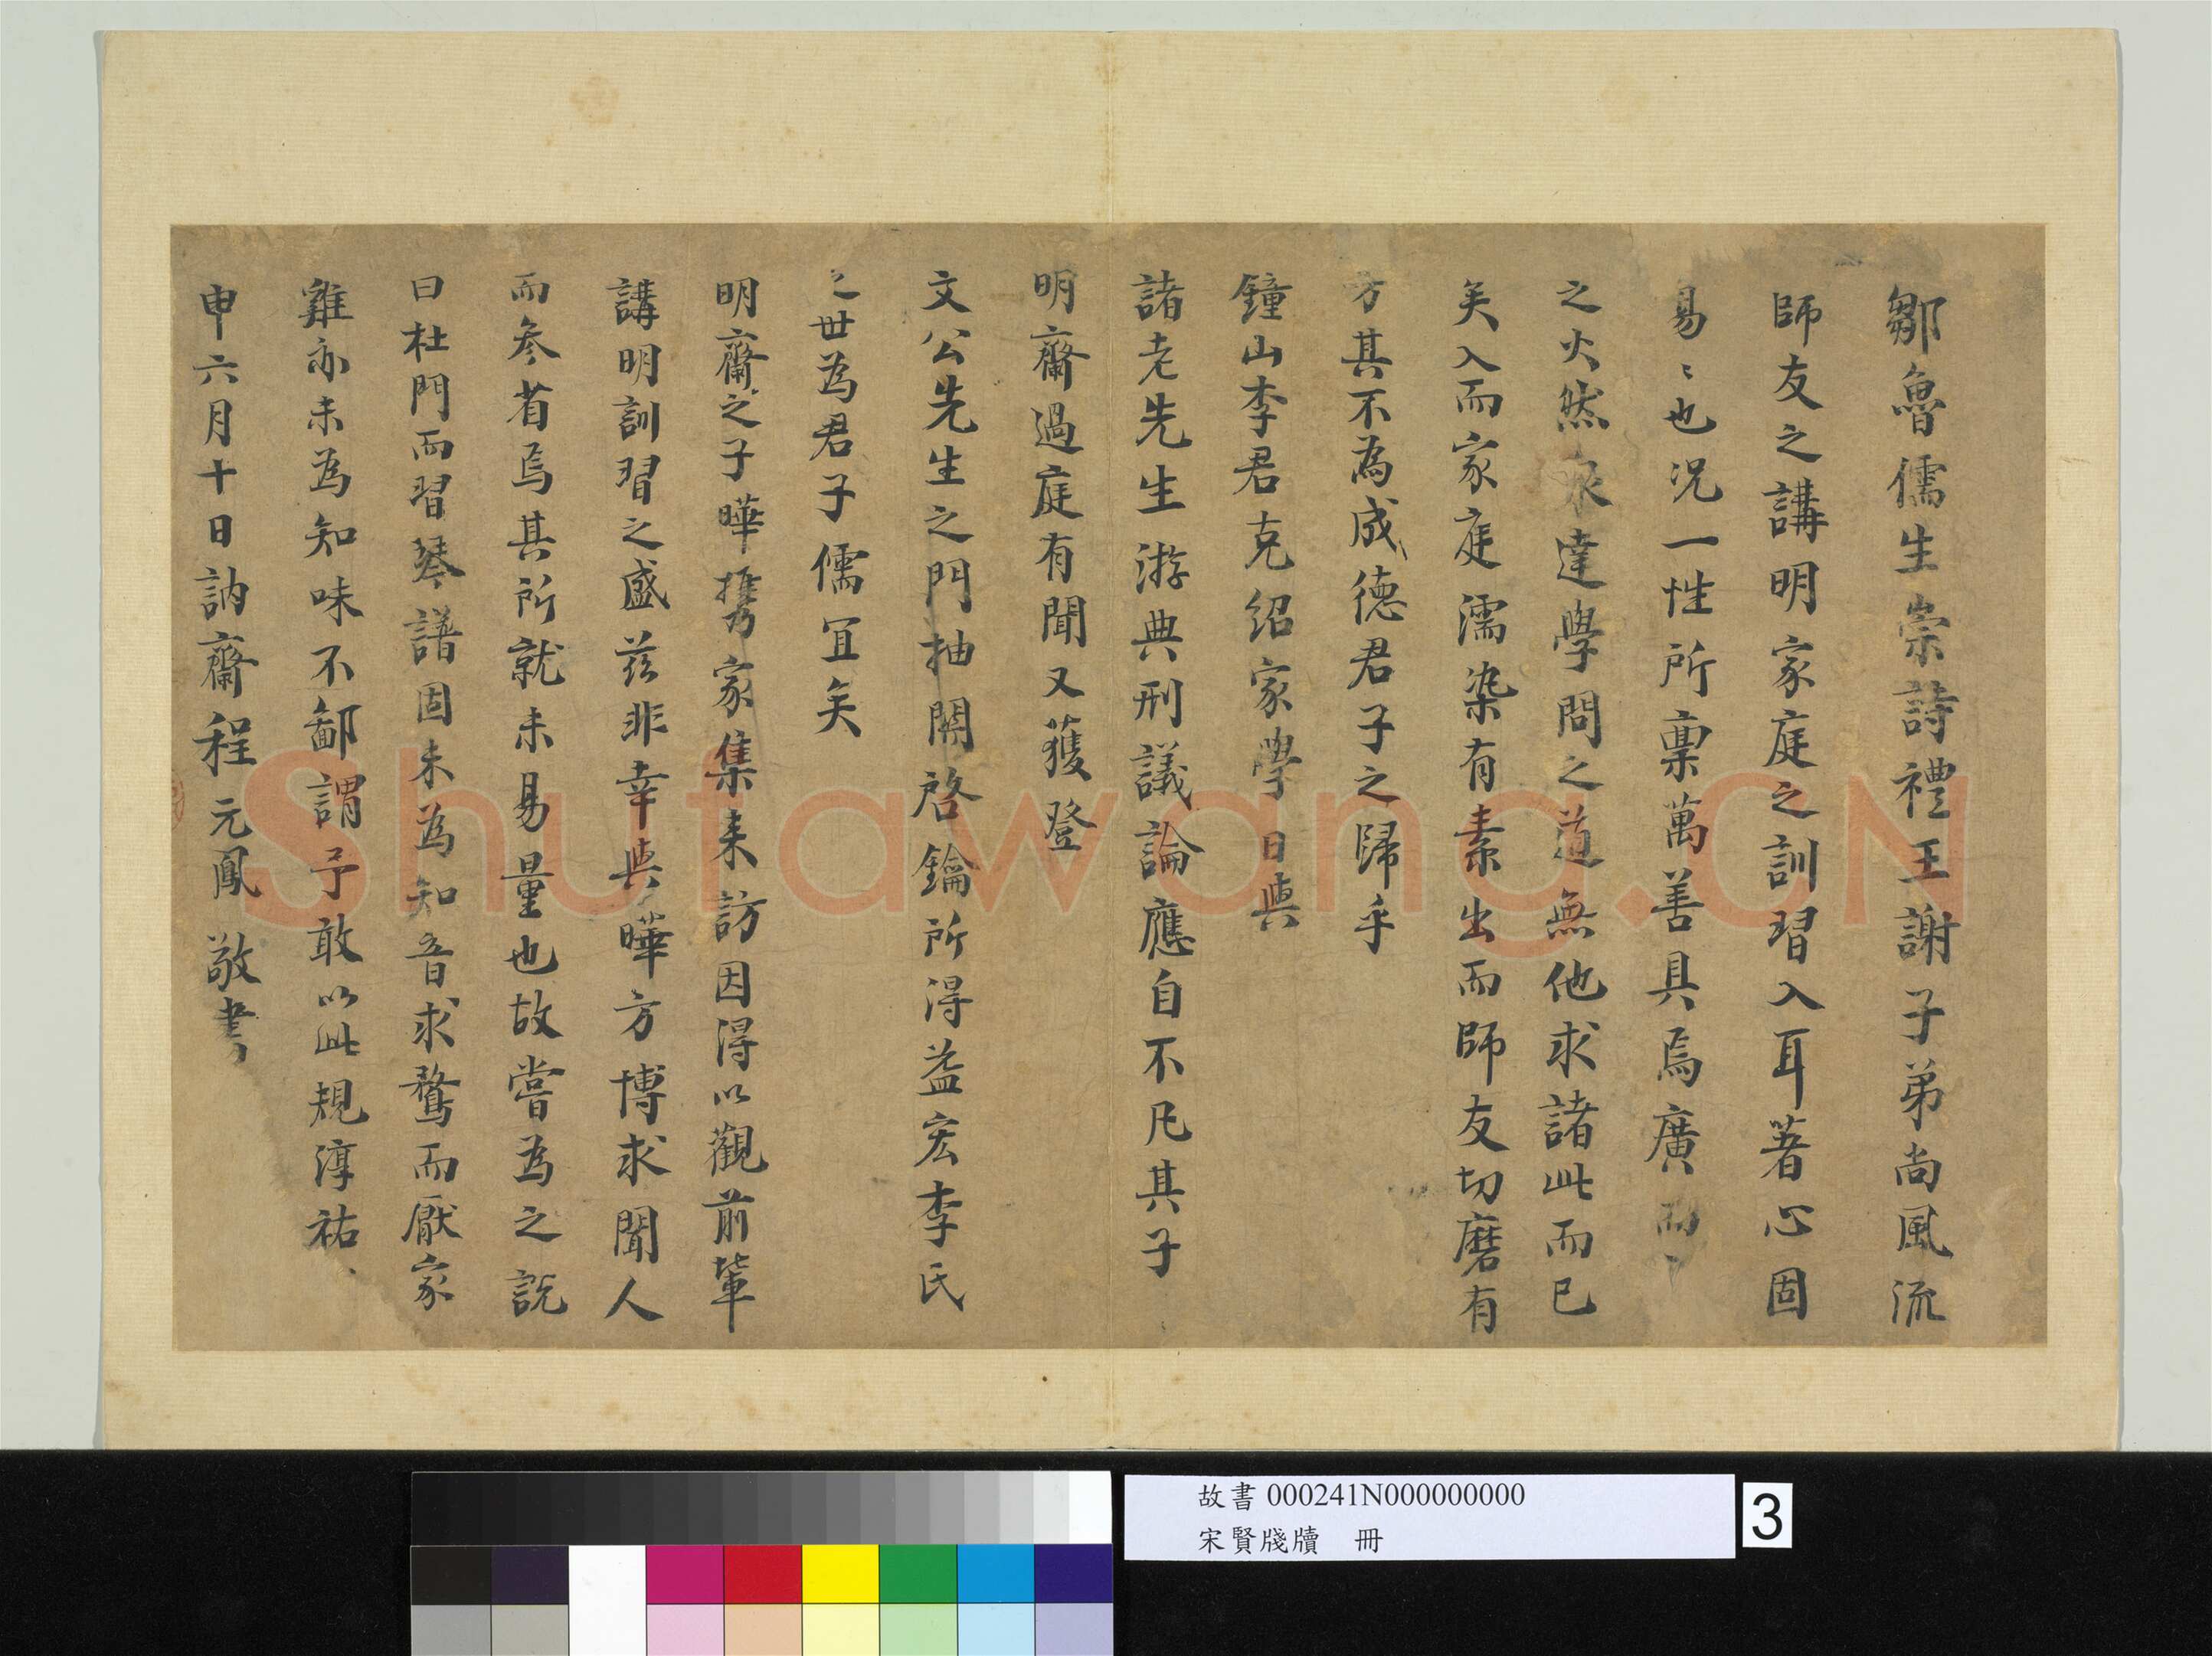 鄒魯儒生崇詩禮王謝子弟尚風流
師友之講明家庭之訓習入耳著心固
易〻也况一性所稟萬善具焉廣而
之火然泉達學問之道無他求諸此而已
矣入而家庭濡染有素出而師友切磨有
方其不為成德君子之歸乎
鐘山李君克紹家學日與
諸老先生游典刑議論應自不凡其子
明齋過庭有聞又獲登
文公先生之門抽關啓鑰所得益宏李氏
之世為君子儒宜矣
明齋之子曄攜家集来訪因得以觀前輩
講明訓習之盛茲非幸與曄方博求聞人
而叅省焉其所就未易量也故嘗為之説
曰杜門而習琴譜固未為知音求鶩而厭家
雞亦未為知味不鄙謂予敢以此規淳祐
申六月十日訥齋程元鳳敬書
Shufawang.CN
故書 000241N000000000
宋賢牋牘 冊
3